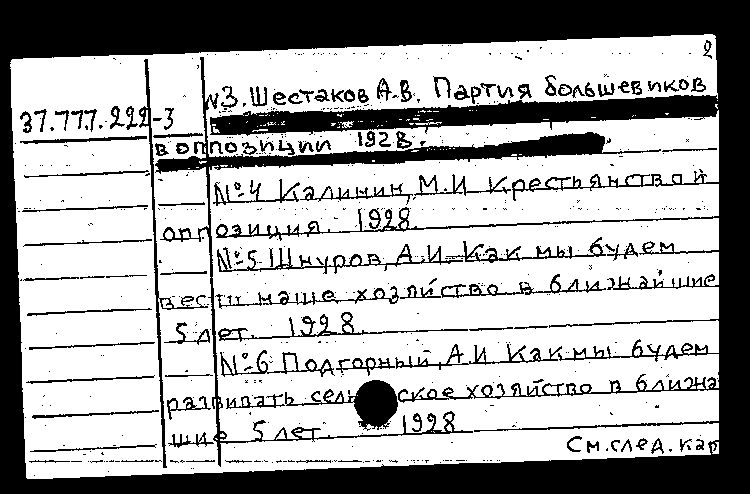 2
№3. Шестаков А.В. Партия большевиков
37.777.222-3
в оппозиции 1928.
№4 Калинин, М.И Крестьянство и
оппозиция. 1928.
№5 Шнуров, А.И. Как мы будем
вести наше хозяйство в ближайшие
5 лет. 1928.
№6 Подгорный, А.И Как мы будем
развивать сель ское хозяйство в ближа
шие 5 лет. 1928
См. след. кар